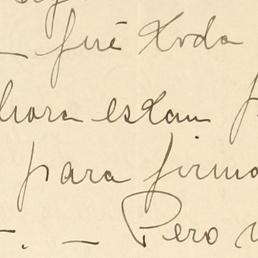 — fué toda
ahora estan f
para firma
. — Pero v